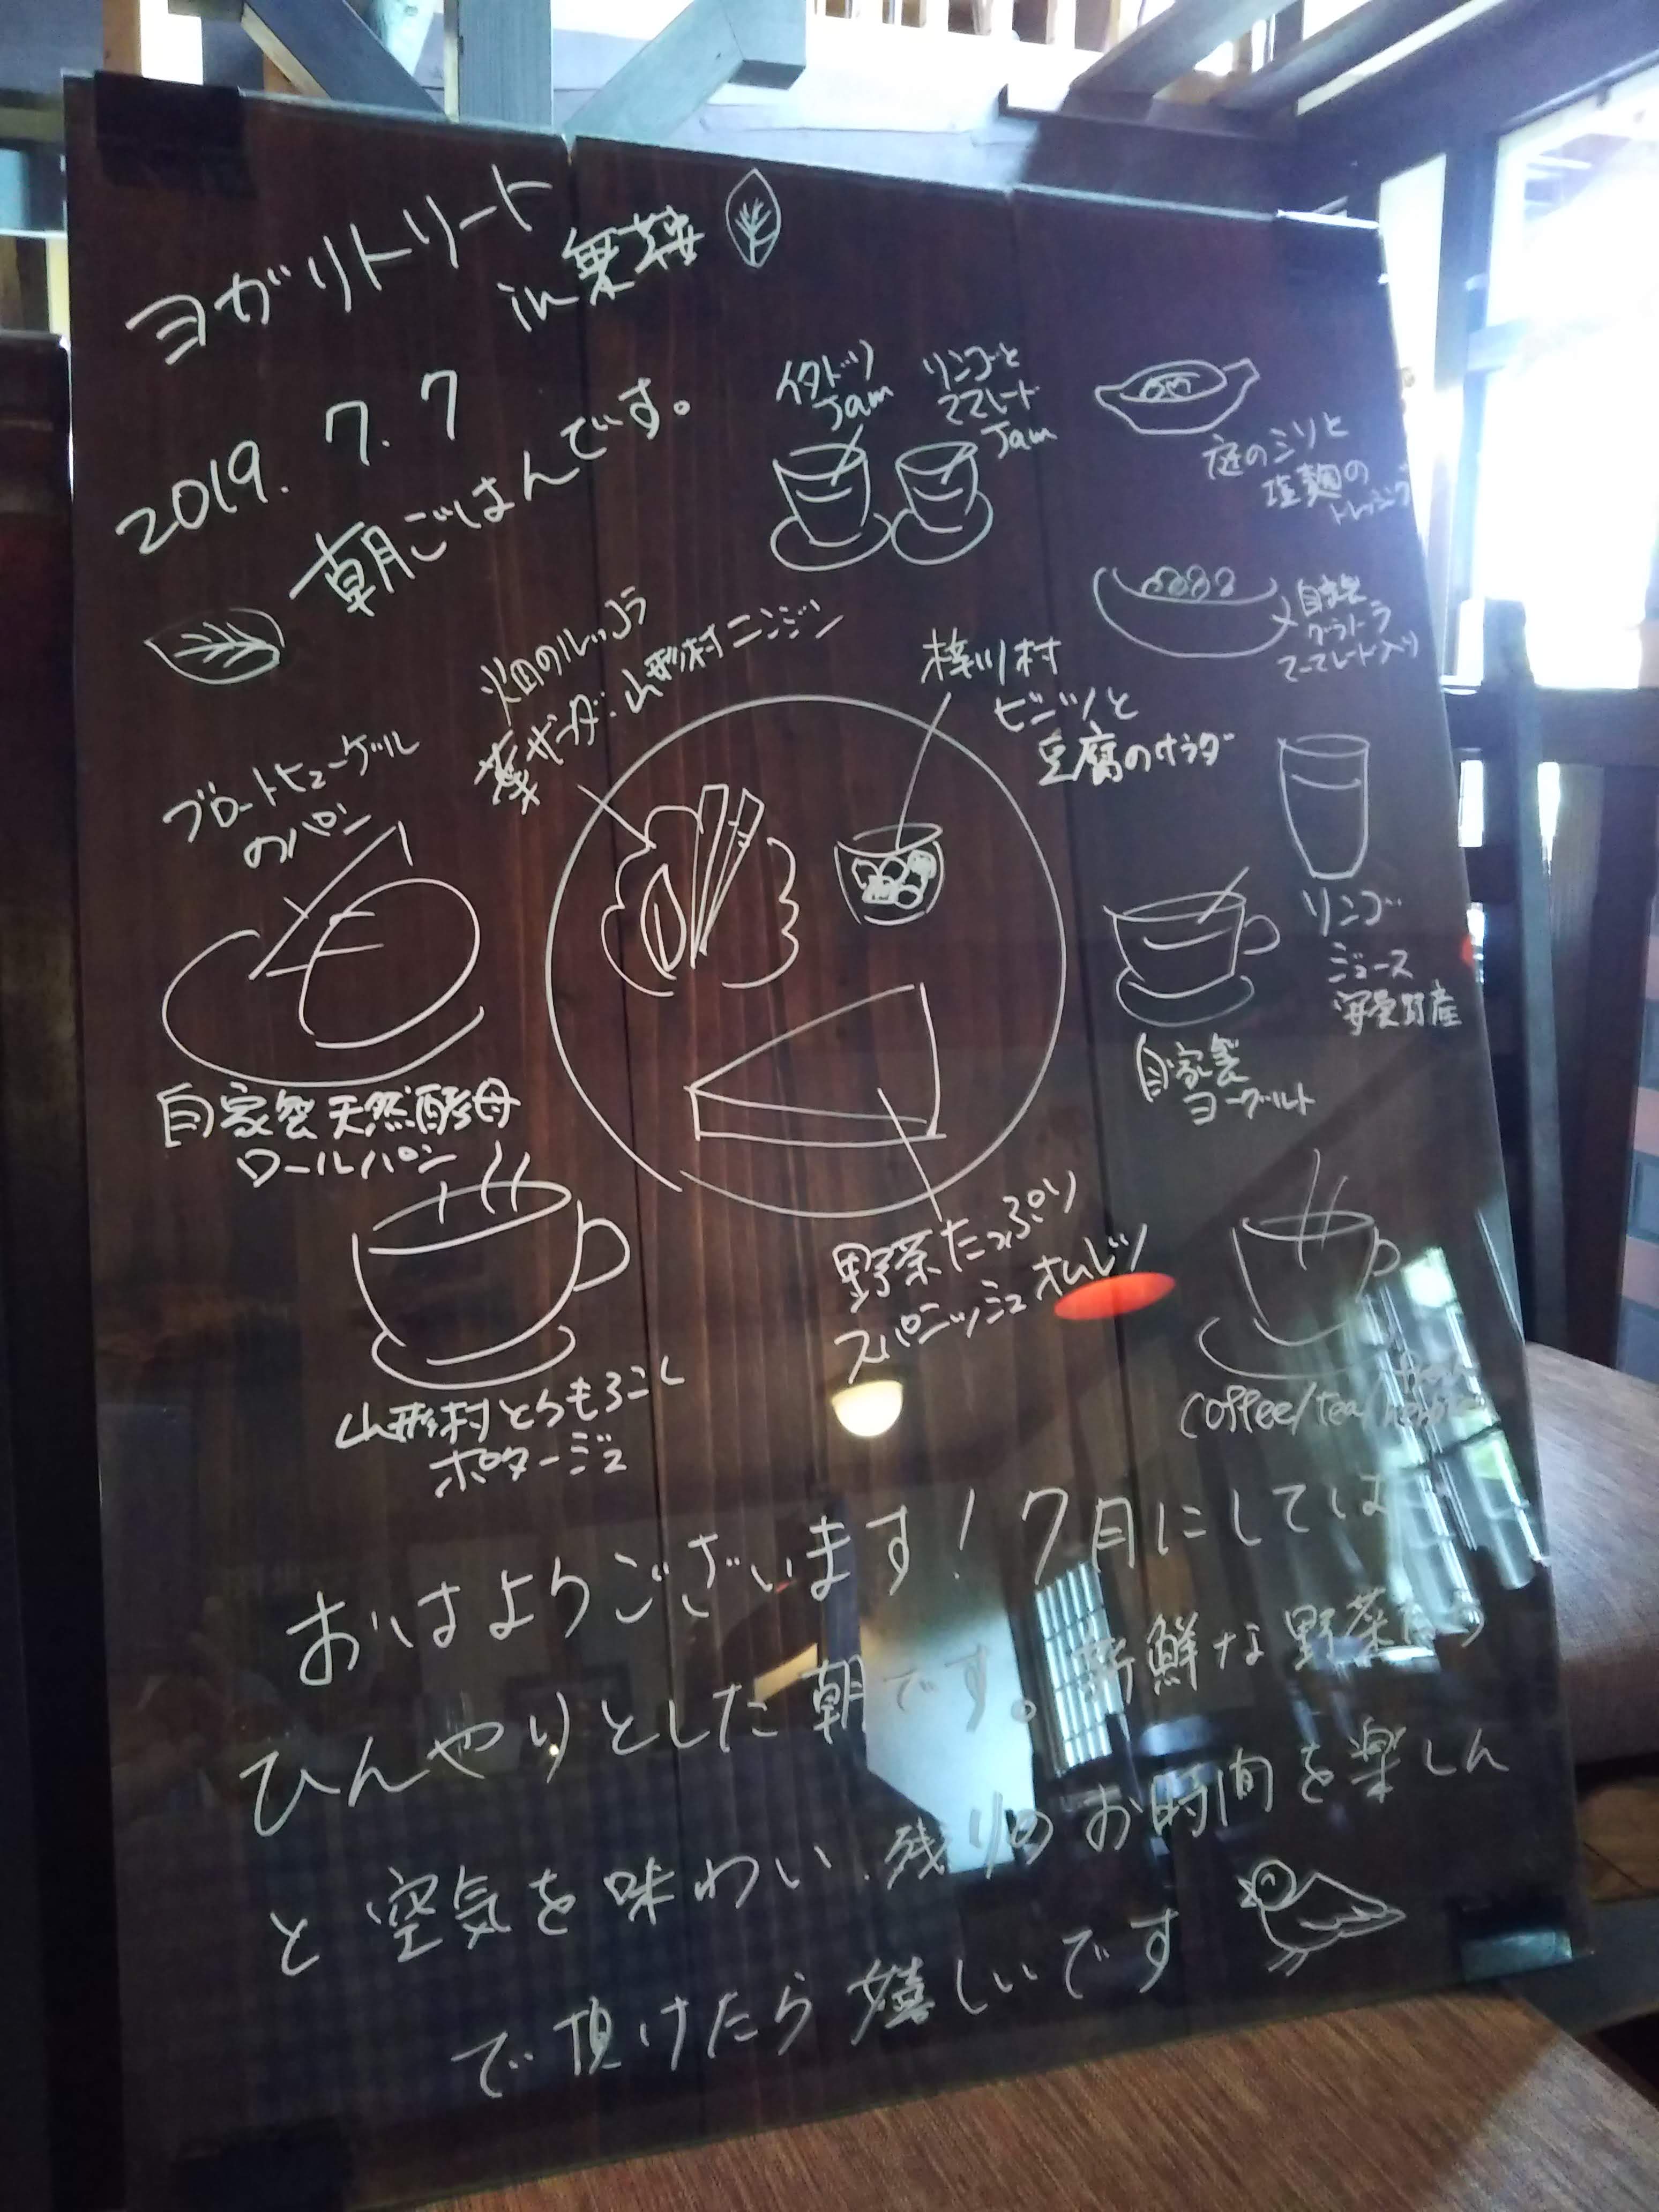 ヨガリトリート
in
2019. 7. 7
朝ごはんです。
イタドリ
Jam
リンゴと
ママレード
Jam
庭のミツと
塩麹の
ドレッシング
自家製
グラノラ
マーマレード入り
畑のルッコラ
葉サラダ:山形村ニンジン
梓川村
ビーンズと
豆腐のサラダ
ブロートヒューゲル
のパン
自家製天然酵母
ロールパン
リンゴ
ジュース
安曇野産
自家製
ヨーグルト
野菜たっぷり
スパニッシュオムレツ
山形村とうもろこし
ポタージュ
coffee/tea/
おはようございます!7月にしては
ひんやりとした朝です。新鮮な野菜たち
と空気を味わい、残りのお時間を楽しん
で頂けたら嬉しいです